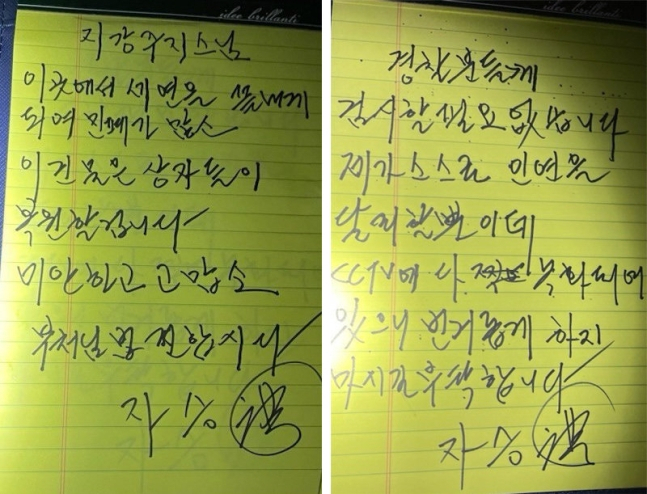 idee brillanti
지강주지스님
이곳에서 세연을 끝내게
되여 민폐가 많소
이 건물은 상자들이
복원할겁니다
미안하고 고맙소
부처님법 전합시다
자승
idee brillanti
경찰분들께
검시할 필요없습니다
제가 스스로 인연을
달리할뿐이데
CCTV에 다 녹화되여
있으니 번거롭게 하지
마시길 부탁합니다
자승